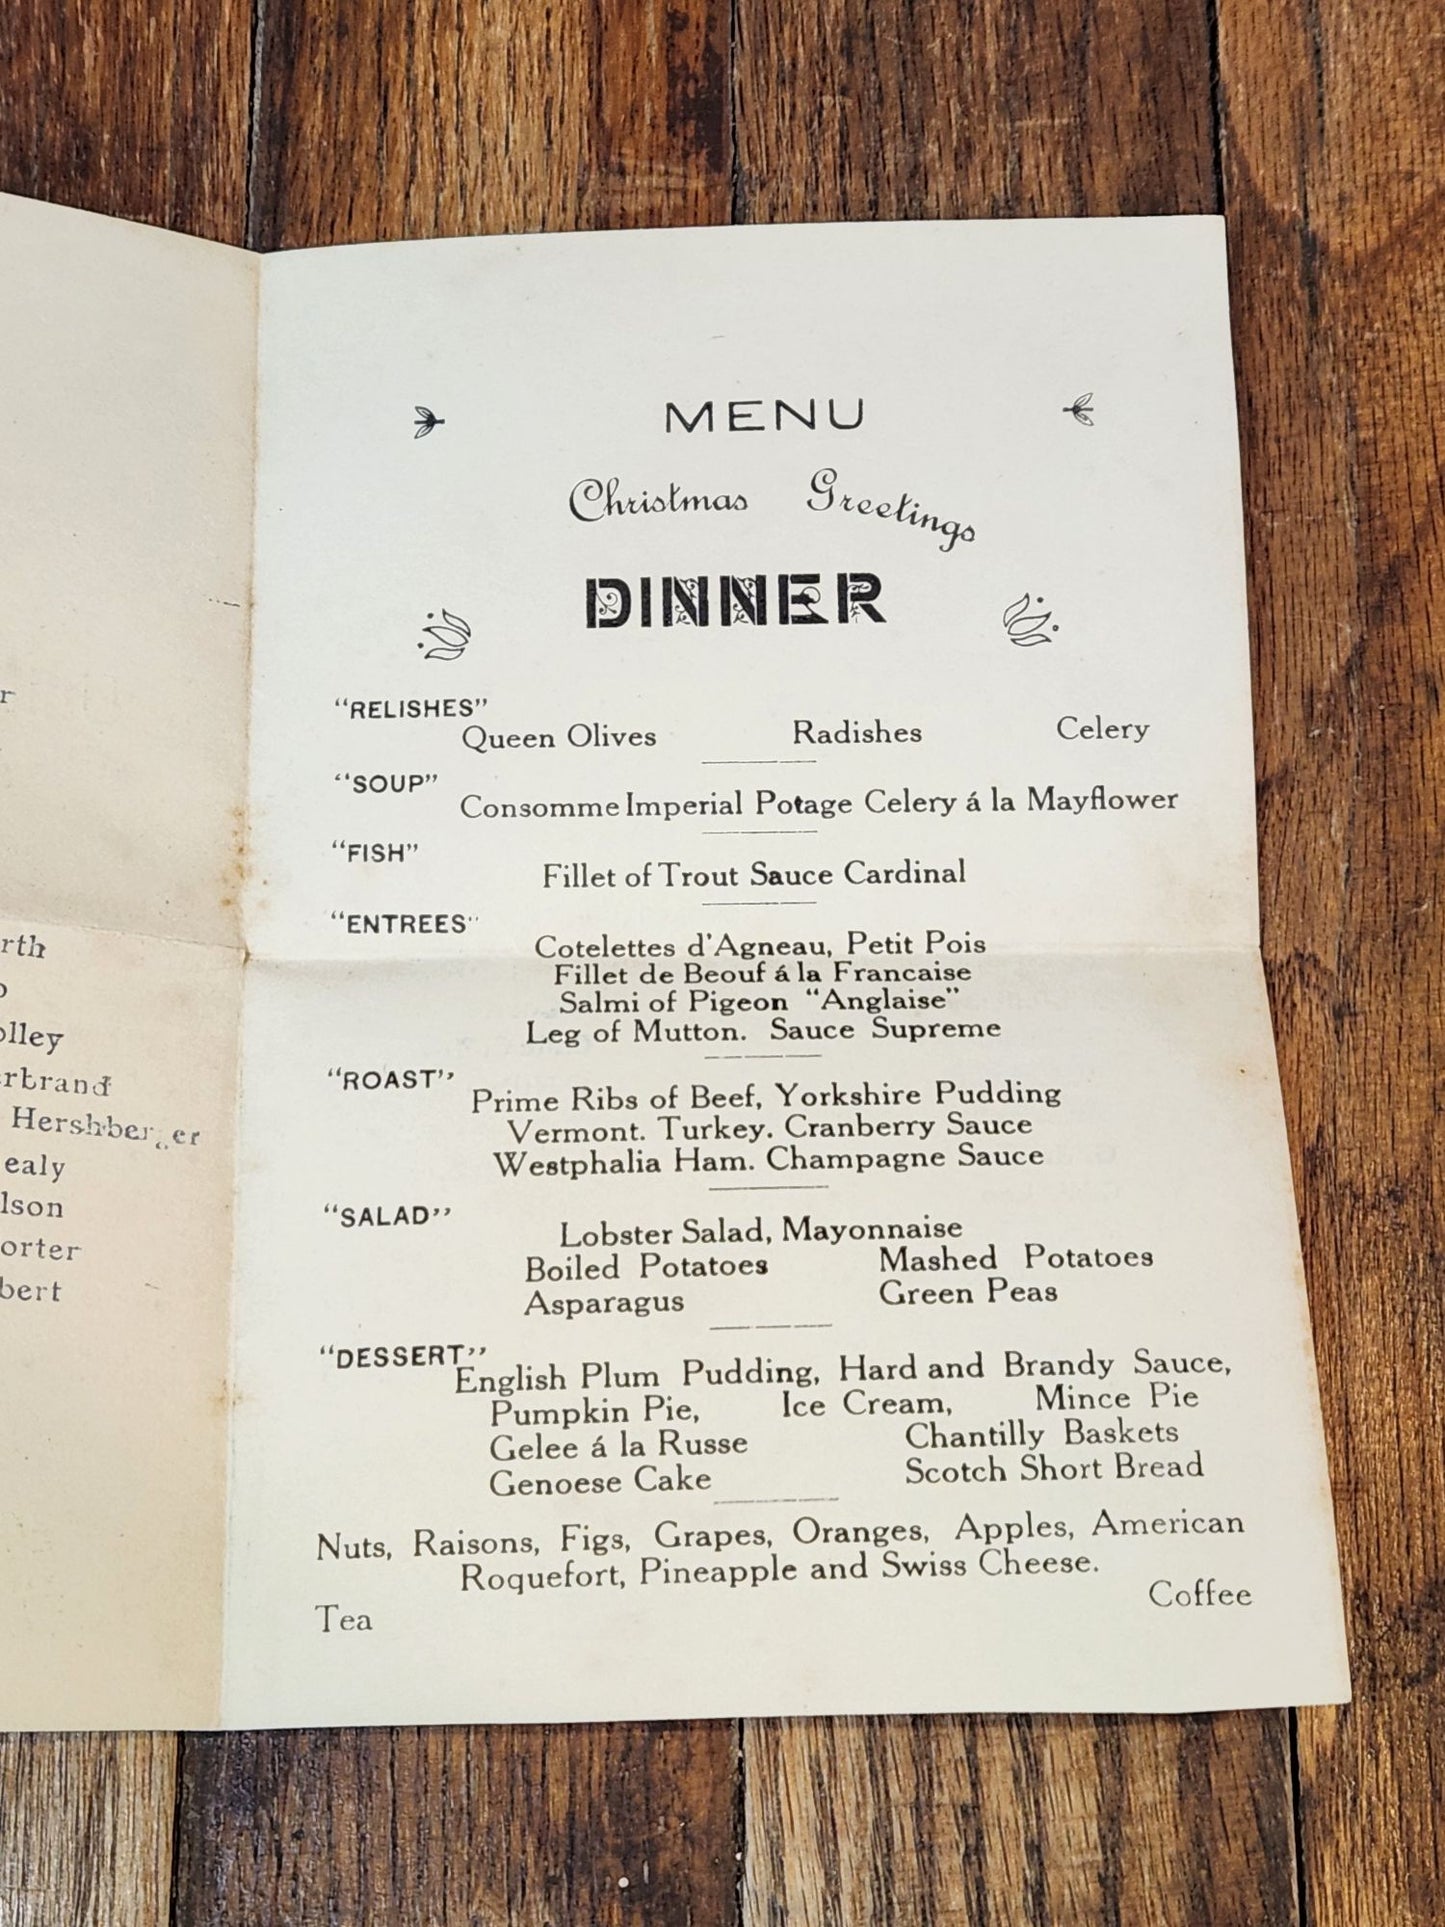 MENU
Christmas Greetings
DINNER
"RELISHES"
Queen Olives Radishes Celery
"SOUP"
Consomme Imperial Potage Celery á la Mayflower
"FISH"
Fillet of Trout Sauce Cardinal
"ENTREES"
Cotelettes d'Agneau, Petit Pois
Fillet de Beouf á la Francaise
Salmi of Pigeon "Anglaise"
Leg of Mutton. Sauce Supreme
"ROAST"
Prime Ribs of Beef, Yorkshire Pudding
Vermont. Turkey. Cranberry Sauce
Westphalia Ham. Champagne Sauce
"SALAD"
Lobster Salad, Mayonnaise
Boiled Potatoes Mashed Potatoes
Asparagus Green Peas
"DESSERT"
English Plum Pudding, Hard and Brandy Sauce,
Pumpkin Pie, Ice Cream, Mince Pie
Gelee á la Russe Chantilly Baskets
Genoese Cake Scotch Short Bread
Nuts, Raisons, Figs, Grapes, Oranges, Apples, American
Roquefort, Pineapple and Swiss Cheese.
Tea Coffee
Hershberger